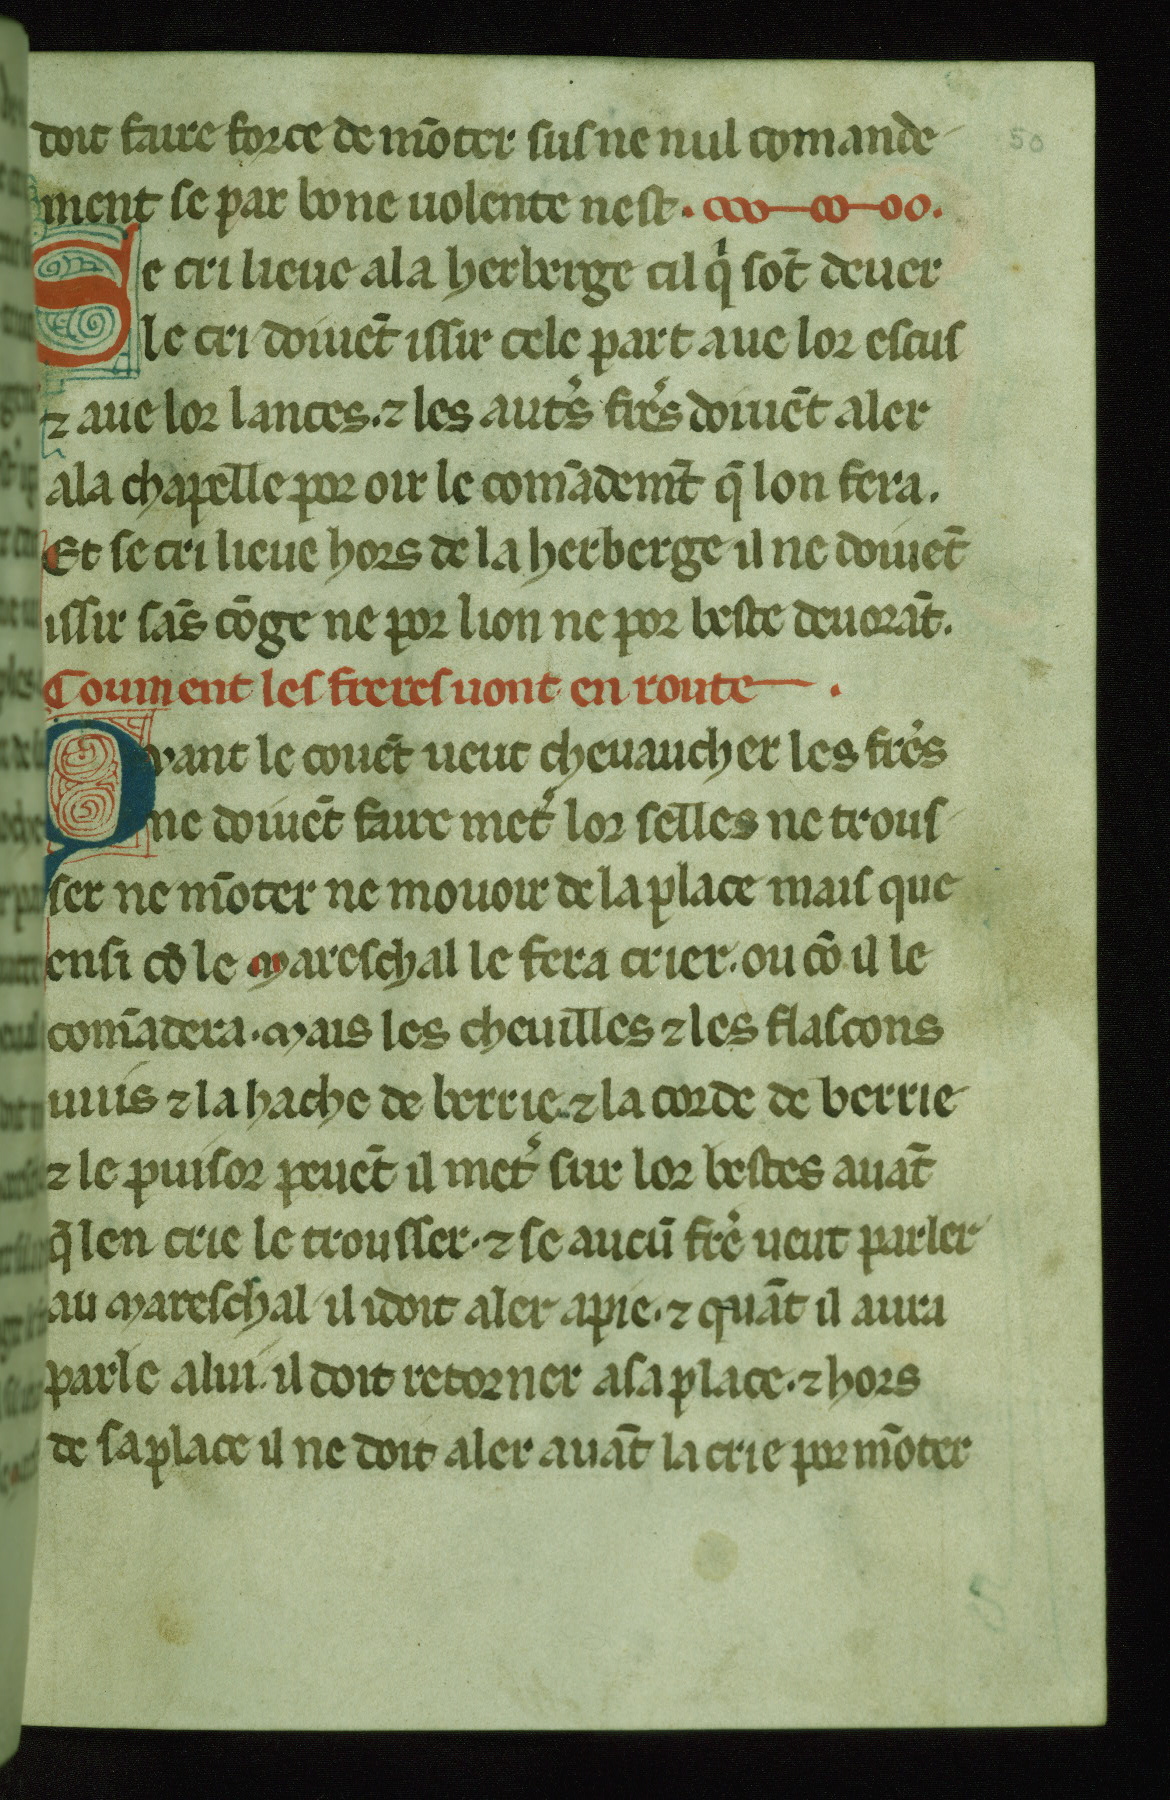 doit faire force de mōter sus ne nul comande
ment se par bone uolente nest.
50
Se cri lieue a la herberge cil q̇ sōt deuer
le cri doiuēt issir cele part aue lor escus
⁊ aue lor lances.⁊ les autṡ frės doiuēt aler
a la chapelle por oir le comādemt̄ q̄ lon fera.
Et se cri lieue hors de la herberge il ne doiuēt
issir sās cōge ne por lion ne por beste deuorāt.
Coument les freres uont en route.
Qvant le couēt ueut cheuaucher les frės
ne doiuēt faire met̉ lor selles ne trous
ser ne mōter ne mouoir de la place mais que
ensi cō le mareschal le fera crier.ou cō il le
comādera.mais les cheuilles ⁊ les flascons
uuis ⁊ la hache de berrie.⁊ la corde de berrie
⁊ le puisor peuēt il met̉ sur lor bestes auāt
q̄ len crie le trousser.⁊ se aucū frė ueut parler
au mareschal il i doit aler a pie.⁊ quāt il aura
parle a lui.il doit retorner a sa place.⁊ hors
de sa place il ne doit aler auāt la crie por mōter